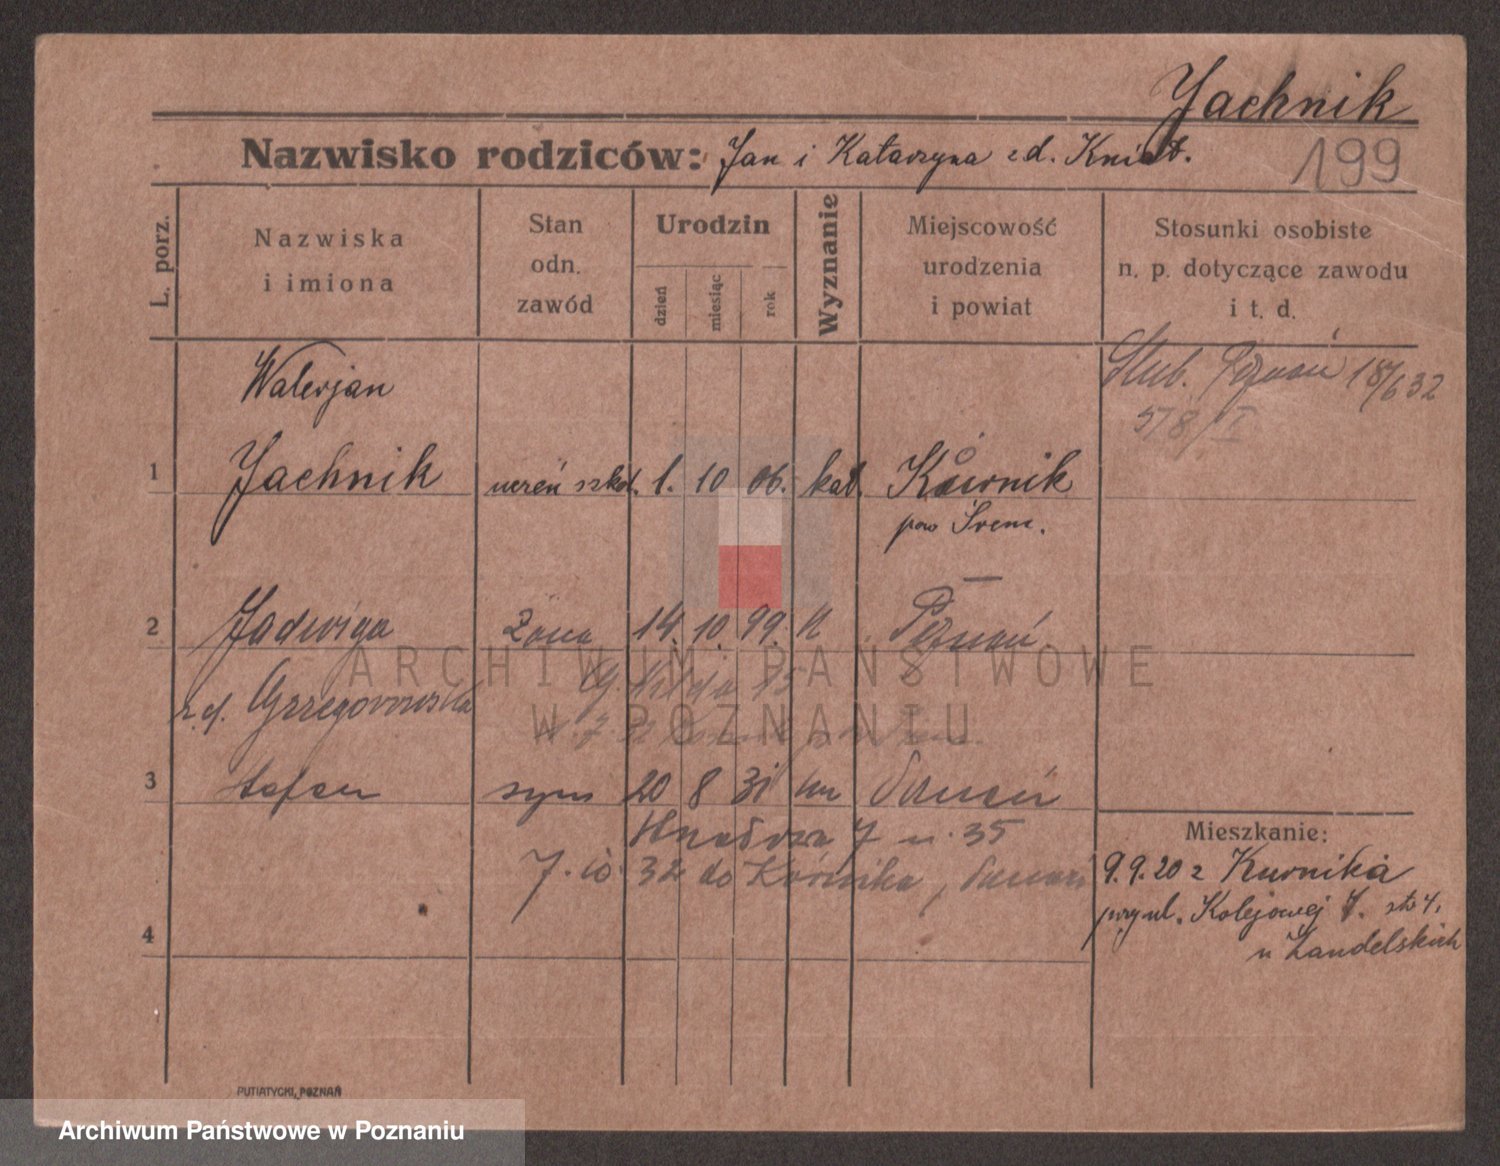 Jachnik
Nazwisko rodziców: Jan i Katarzyna z d. Kniat.
199
L. porz.
Nazwiska
i imiona
Stan
odn.
zawód
Urodzin
dzień
miesiąc
rok
Wyznanie
Miejscowość
urodzenia
i powiat
Stosunki osobiste
n. p. dotyczące zawodu
i t. d.
Ślub. Poznań 18/6 32
578/I
Walerjan
1 Jachnik uczeń szkol. 1. 10 06. kat. Kórnik
pow Śrem.
2 Jadwiga żona 14. 10. 99. Poznań
z d. Grzegorzewska
ARCHIWUM PAŃSTWOWE
W POZNANIU
3 Stefan syn 20 8 31 Poznań
7 m. 35
7. 10. 32 do Kórnika,
Mieszkanie:
9.9.20 z Kurnika
przy ul. Kolejowej 7. stó 4,
u Landelskich
4
PUTIATYCKI, POZNAŃ
Archiwum Państwowe w Poznaniu